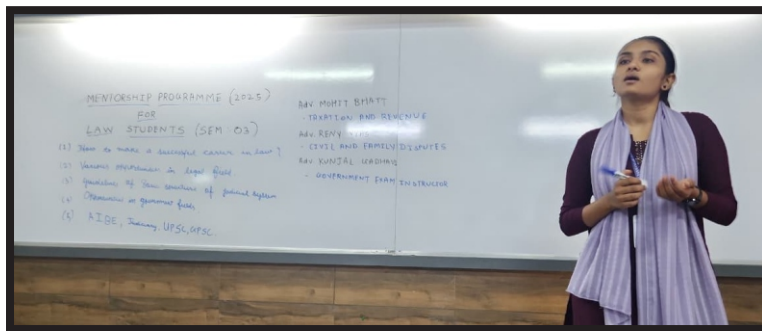 MENTORSHIP PROGRAMME (2025)
FOR
LAW STUDENTS (SEM 03)
(1) How to make a successful career in law?
(2) Various opportunities in legal field
(3) Guideline of Four of judicial system
(4) in government fields
(5) AIBE, Judiciary, UPSC, GPSC.
Adv. MOHIT BHATT
- TAXATION AND REVENUE
Adv. RENY
- CIVIL AND FAMILY DISPUTES
Adv KUNJAL
- GOVERNMENT EXAM INSTRUCTOR